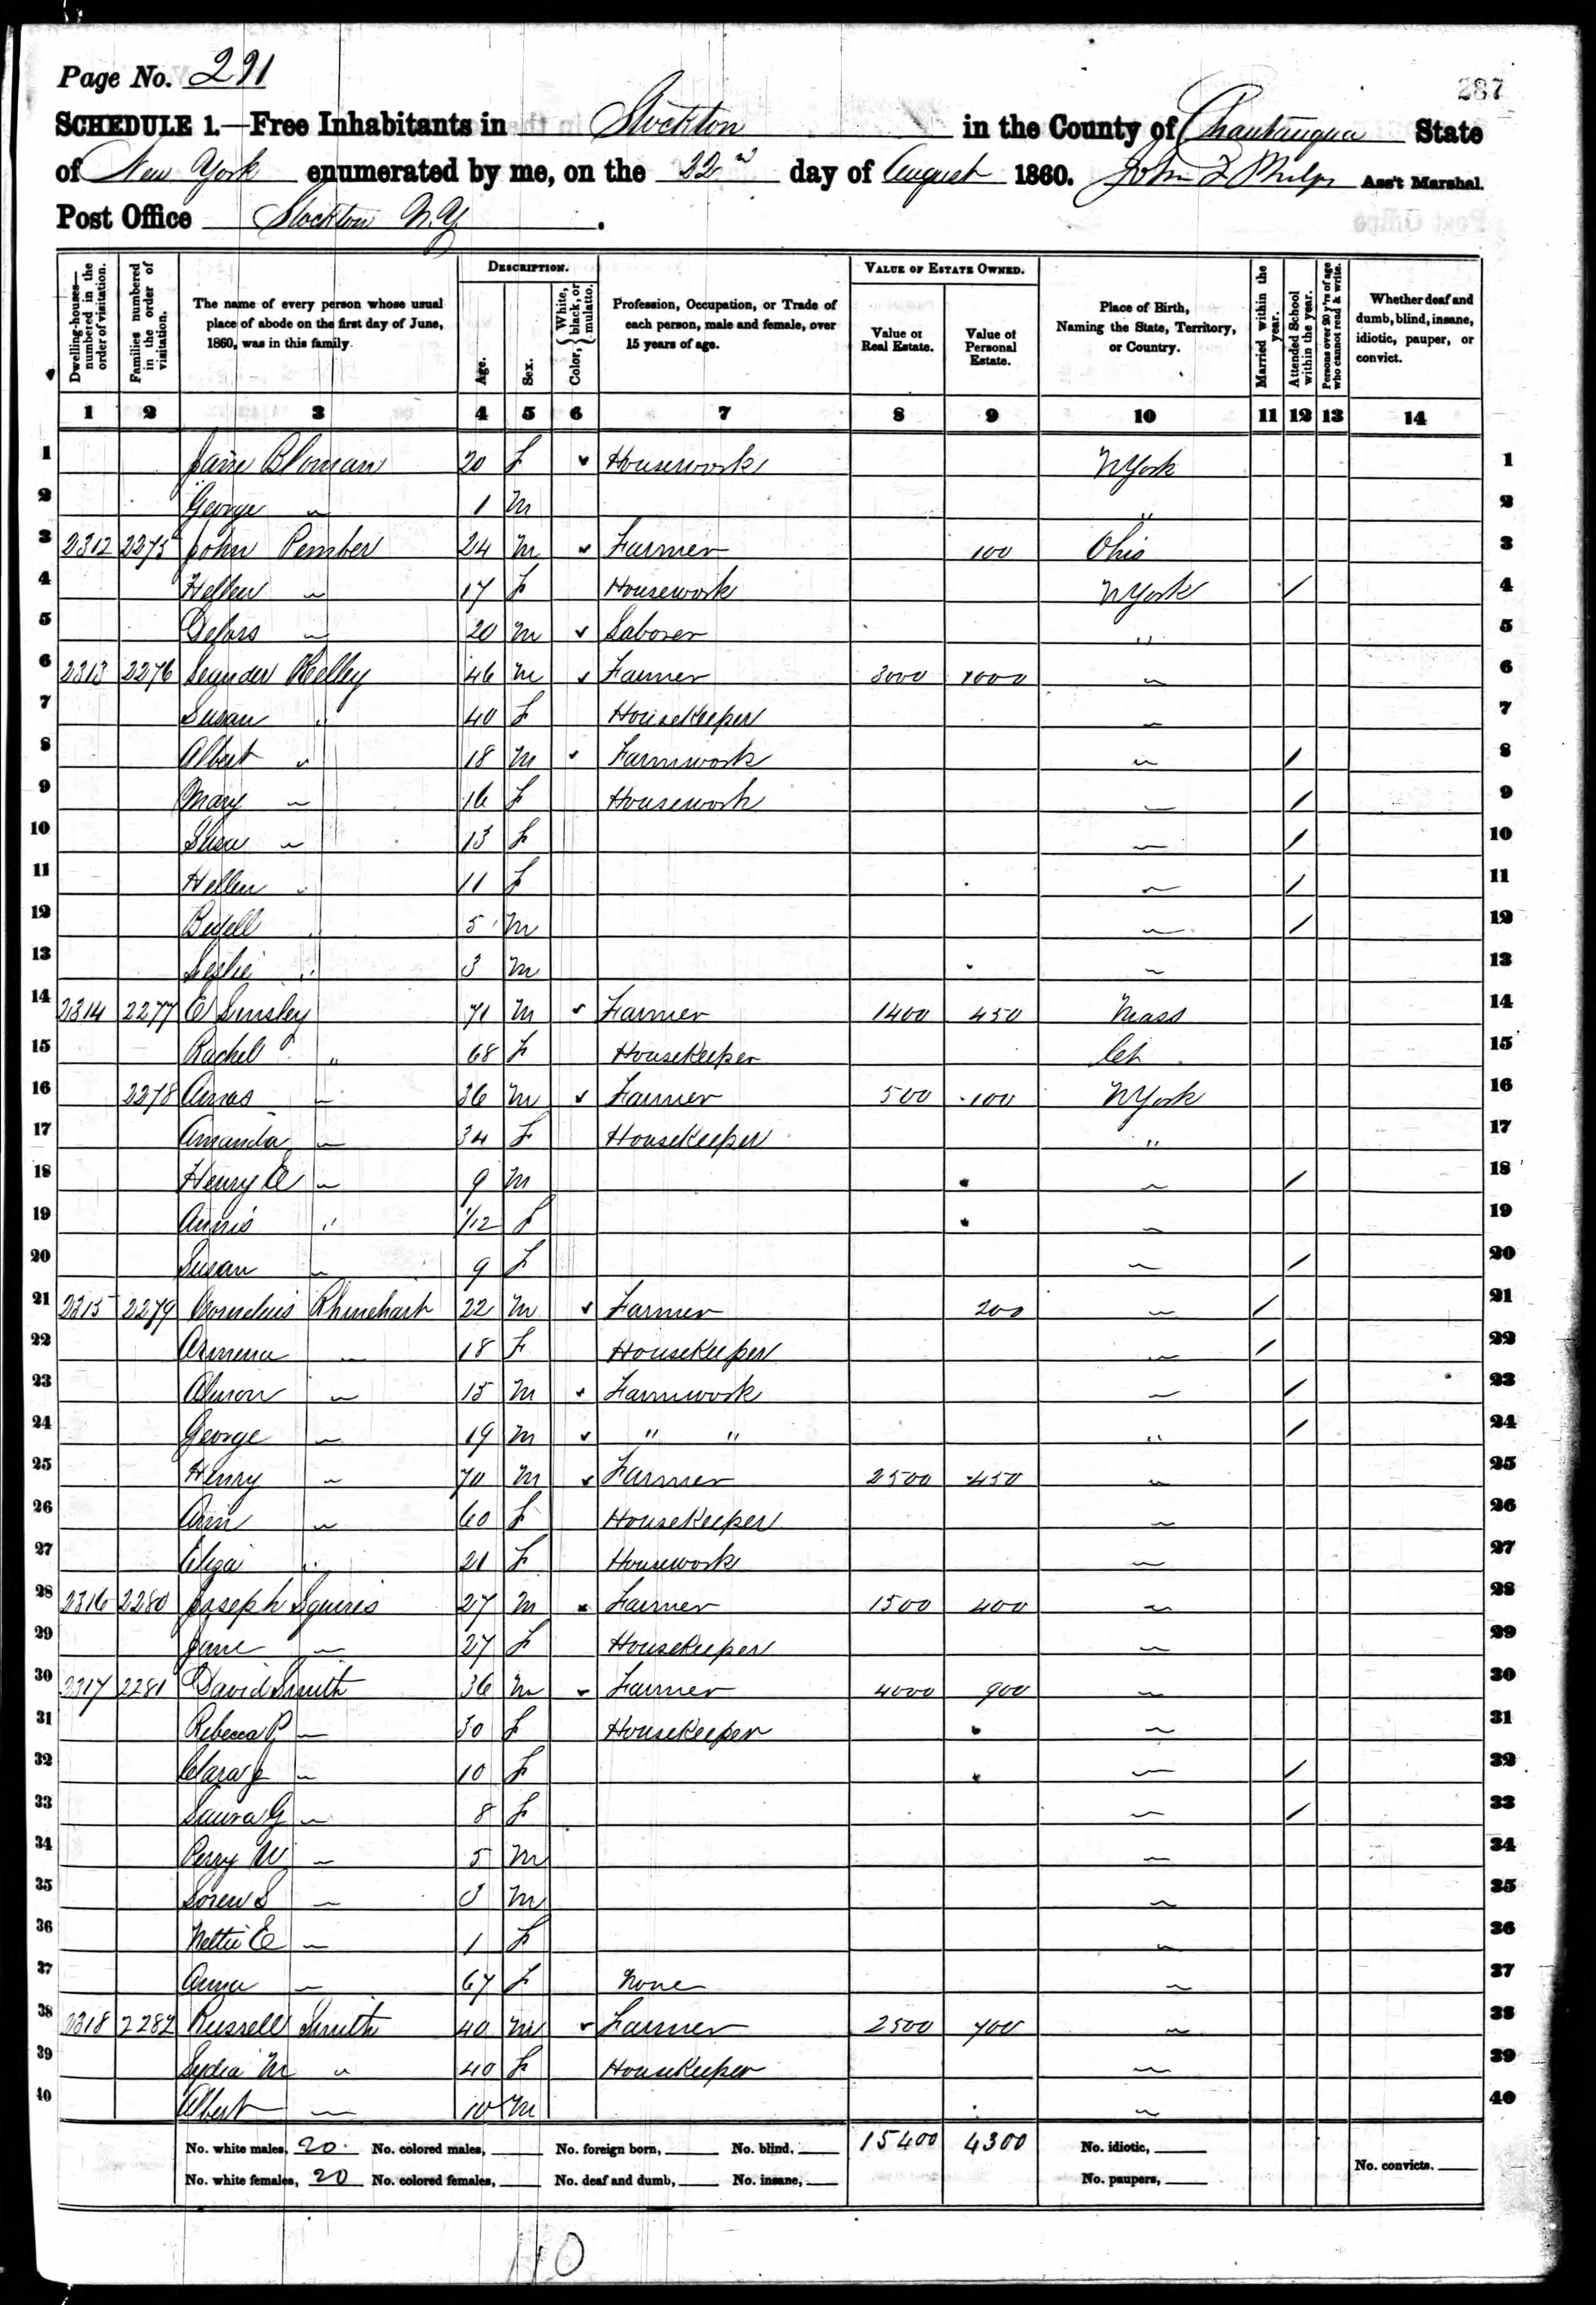 Page No. 291
287
SCHEDULE 1.—Free Inhabitants in Stockton in the County of Chautauqua State
of New York enumerated by me, on the 22d day of August 1860. John F Phelps Ass't Marshal.
Post Office Stockton N.Y.
Dwelling-houses—numbered in the order of visitation. Families numbered in the order of visitation. The name of every person whose usual place of abode on the first day of June, 1860, was in this family. DESCRIPTION. Age. Sex. Color, { White, black, or mulatto. Profession, Occupation, or Trade of each person, male and female, over 15 years of age. VALUE OF ESTATE OWNED. Value of Real Estate. Value of Personal Estate. Place of Birth, Naming the State, Territory, or Country. Married within the year. Attended School within the year. Persons over 20 y'rs of age who cannot read & write. Whether deaf and dumb, blind, insane, idiotic, pauper, or convict.
1 2 3 4 5 6 7 8 9 10 11 12 13 14
1 Jane Bloman 20 F Housework NYork 1
2 George " 1 M " 2
3 2312 2275 John Pember 24 M Farmer 100 Ohio 3
4 Hellen " 17 F Housework NYork / 4
5 Deloss " 20 M Laborer " 5
6 2313 2276 Leander Kelley 46 M Farmer 3000 1000 " 6
7 Susan " 40 F Housekeeper " 7
8 Albert " 18 M Farmwork " / 8
9 Mary " 16 F Housework " / 9
10 " 13 F " / 10
11 Hellen " 11 F " / 11
12 " 5 M " / 12
13 Leslie " 3 M " 13
14 2314 2277 E Linsley 71 M Farmer 1400 450 Mass 14
15 Rachel " 68 F Housekeeper Ct 15
16 2278 Amos " 36 M Farmer 500 100 NYork 16
17 Amanda " 34 F Housekeeper " 17
18 Henry E " 9 M " / 18
19 Annis " 1/12 F " 19
20 Susan " 9 F " / 20
21 2315 2279 Cornelius Rhinehart 22 M Farmer 200 " / 21
22 Armena " 18 F Housekeeper " / 22
23 Almon " 15 M Farmwork " / 23
24 George " 19 M " " " / 24
25 Henry " 70 M Farmer 2500 450 " 25
26 Ann " 60 F Housekeeper " 26
27 Eliza " 21 F Housework " 27
28 2316 2280 Joseph Squires 27 M Farmer 1500 400 " 28
29 Jane " 27 F Housekeeper " 29
30 2317 2281 David Smith 36 M Farmer 4000 900 " 30
31 Rebecca P " 30 F Housekeeper " 31
32 Clara J " 10 F " / 32
33 Laura G " 8 F " / 33
34 Perry W " 5 M " 34
35 Loren S " 3 M " 35
36 Nettie E " 1 F " 36
37 Anna " 67 F None " 37
38 2318 2282 Russell Smith 40 M Farmer 2500 700 " 38
39 Lydia M " 40 F Housekeeper " 39
40 Albert " 10 M " 40
No. white males, 20 No. colored males, No. foreign born, No. blind, 15400 4300 No. idiotic,
No. white females, 20 No. colored females, No. deaf and dumb, No. insane, No. paupers, No. convicts.